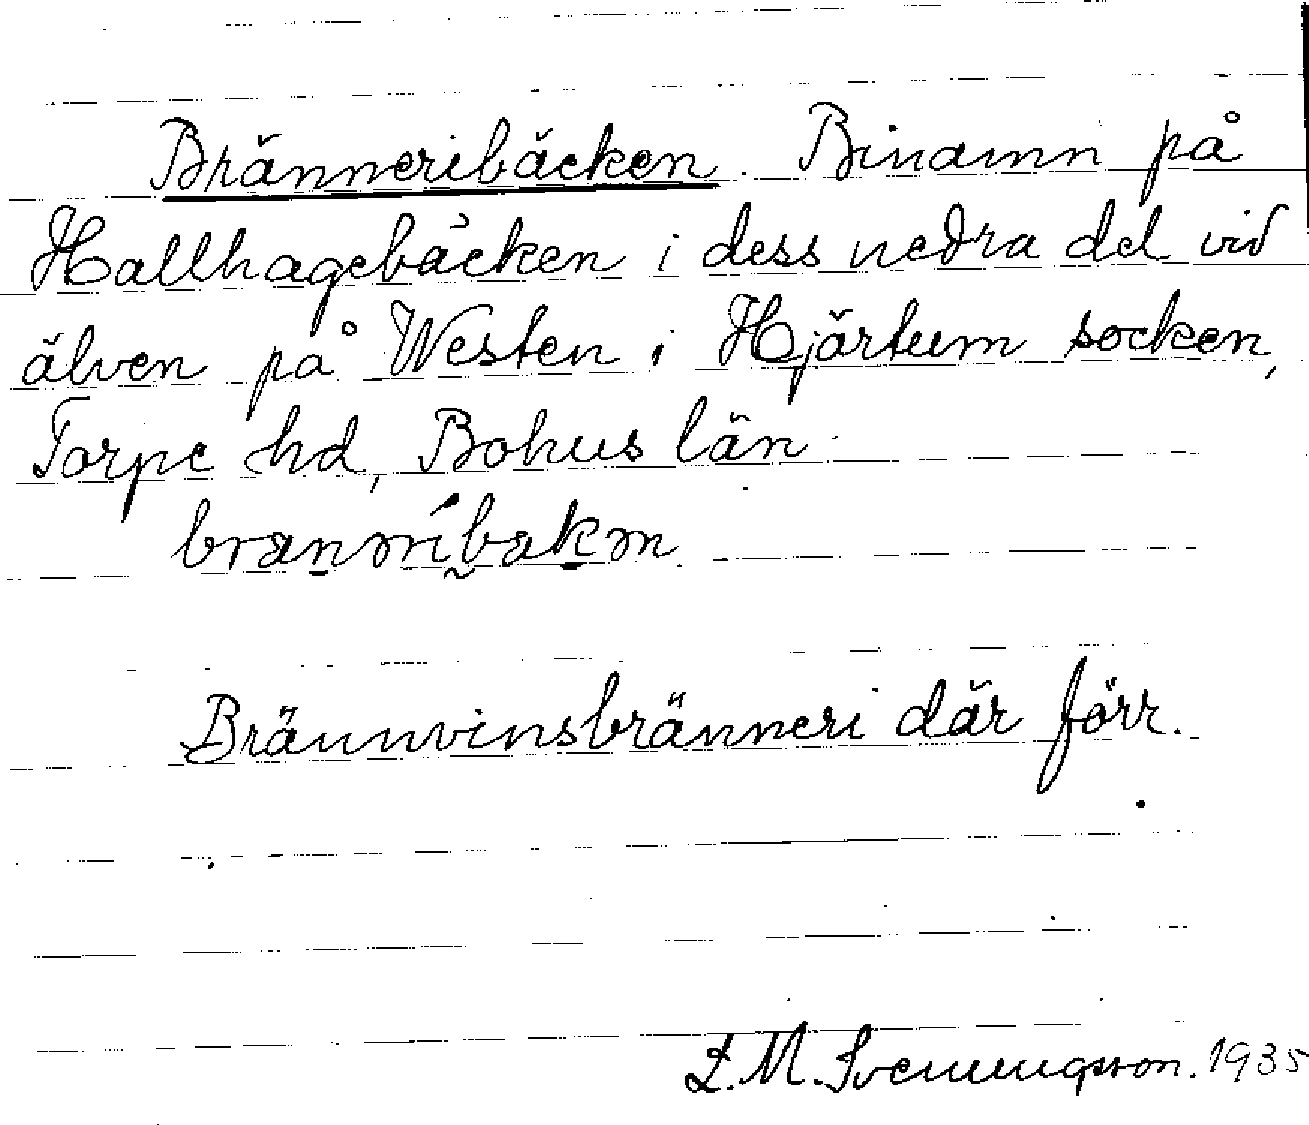 Bränneribäcken. Binamn på
Hallhagebäcken i dess nedra del vid
älven på Westen i Hjärtum socken,
Torpe hd, Bohus län
Brännvinsbränneri där förr.
L. M. Svenungsson. 1935